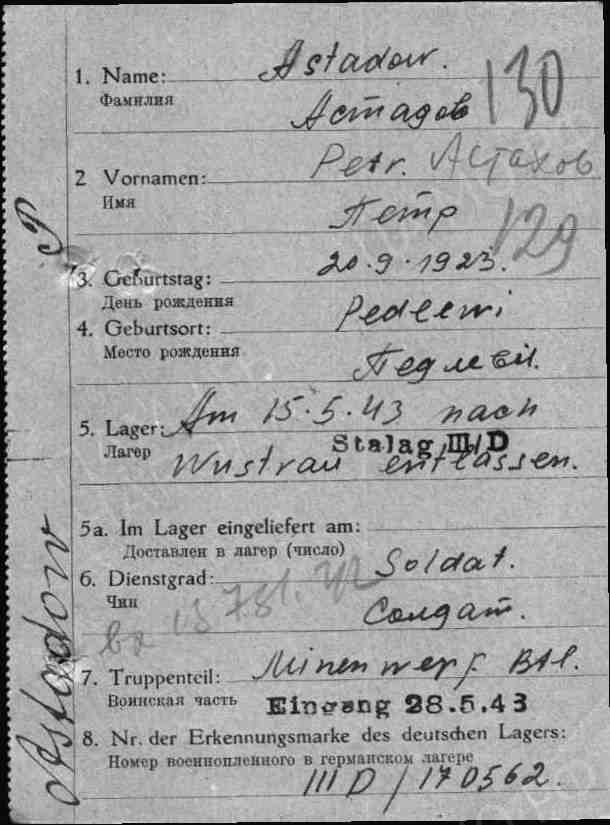 1. Name: Astadow.
Фамилия
Астадов
130
2 Vornamen: Petr. Астахов
Имя
Петр
129
3. Geburtstag: 20.9.1923.
День рождения
4. Geburtsort: Pedlewi
Место рождения
Педлеви.
5. Lager: Am 15.5.43 nach
Лагер
Stalag III/D
Wustrau entlassen.
5a. Im Lager eingeliefert am:
Доставлен в лагер (число)
6. Dienstgrad: Soldat.
Чин
Солдат.
7. Truppenteil: Minenwerf Btl.
Воинская часть
Eingang 28.5.43
8. Nr. der Erkennungsmarke des deutschen Lagers:
Номер военнопленного в германском лагере
III D / 170562.
Astadow